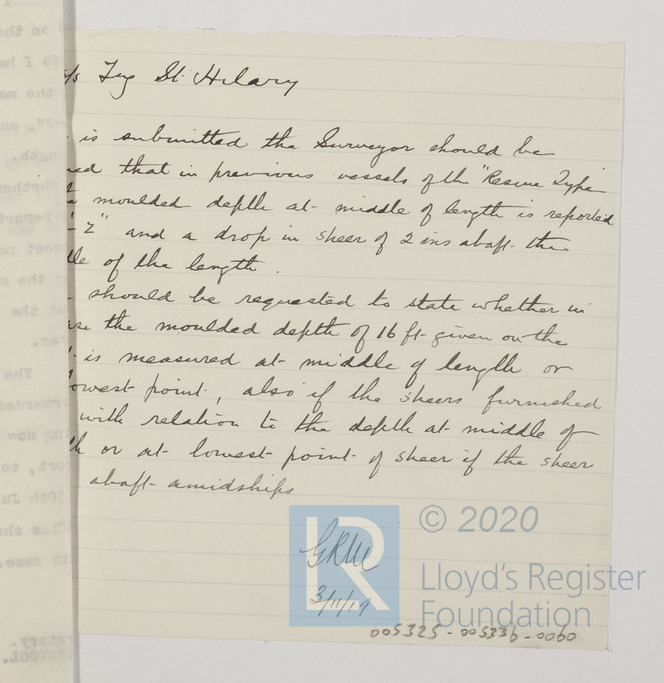 s/s Tug St. Hilary
is submitted the Surveyor should be
that in previous vessels of the "Rescue Type
moulded depth at middle of length is reported
2" and a drop in sheer of 2 ins abaft the
of the length.
should be requested to state whether in
the moulded depth of 16 ft given on the
is measured at middle of length or
lowest point, also if the sheers furnished
with relation to the depth at middle of
or at lowest point of sheer if the sheer
abaft amidships
GRM
3/11/19
LR
© 2020
Lloyd's Register
Foundation
005325-005336-0060